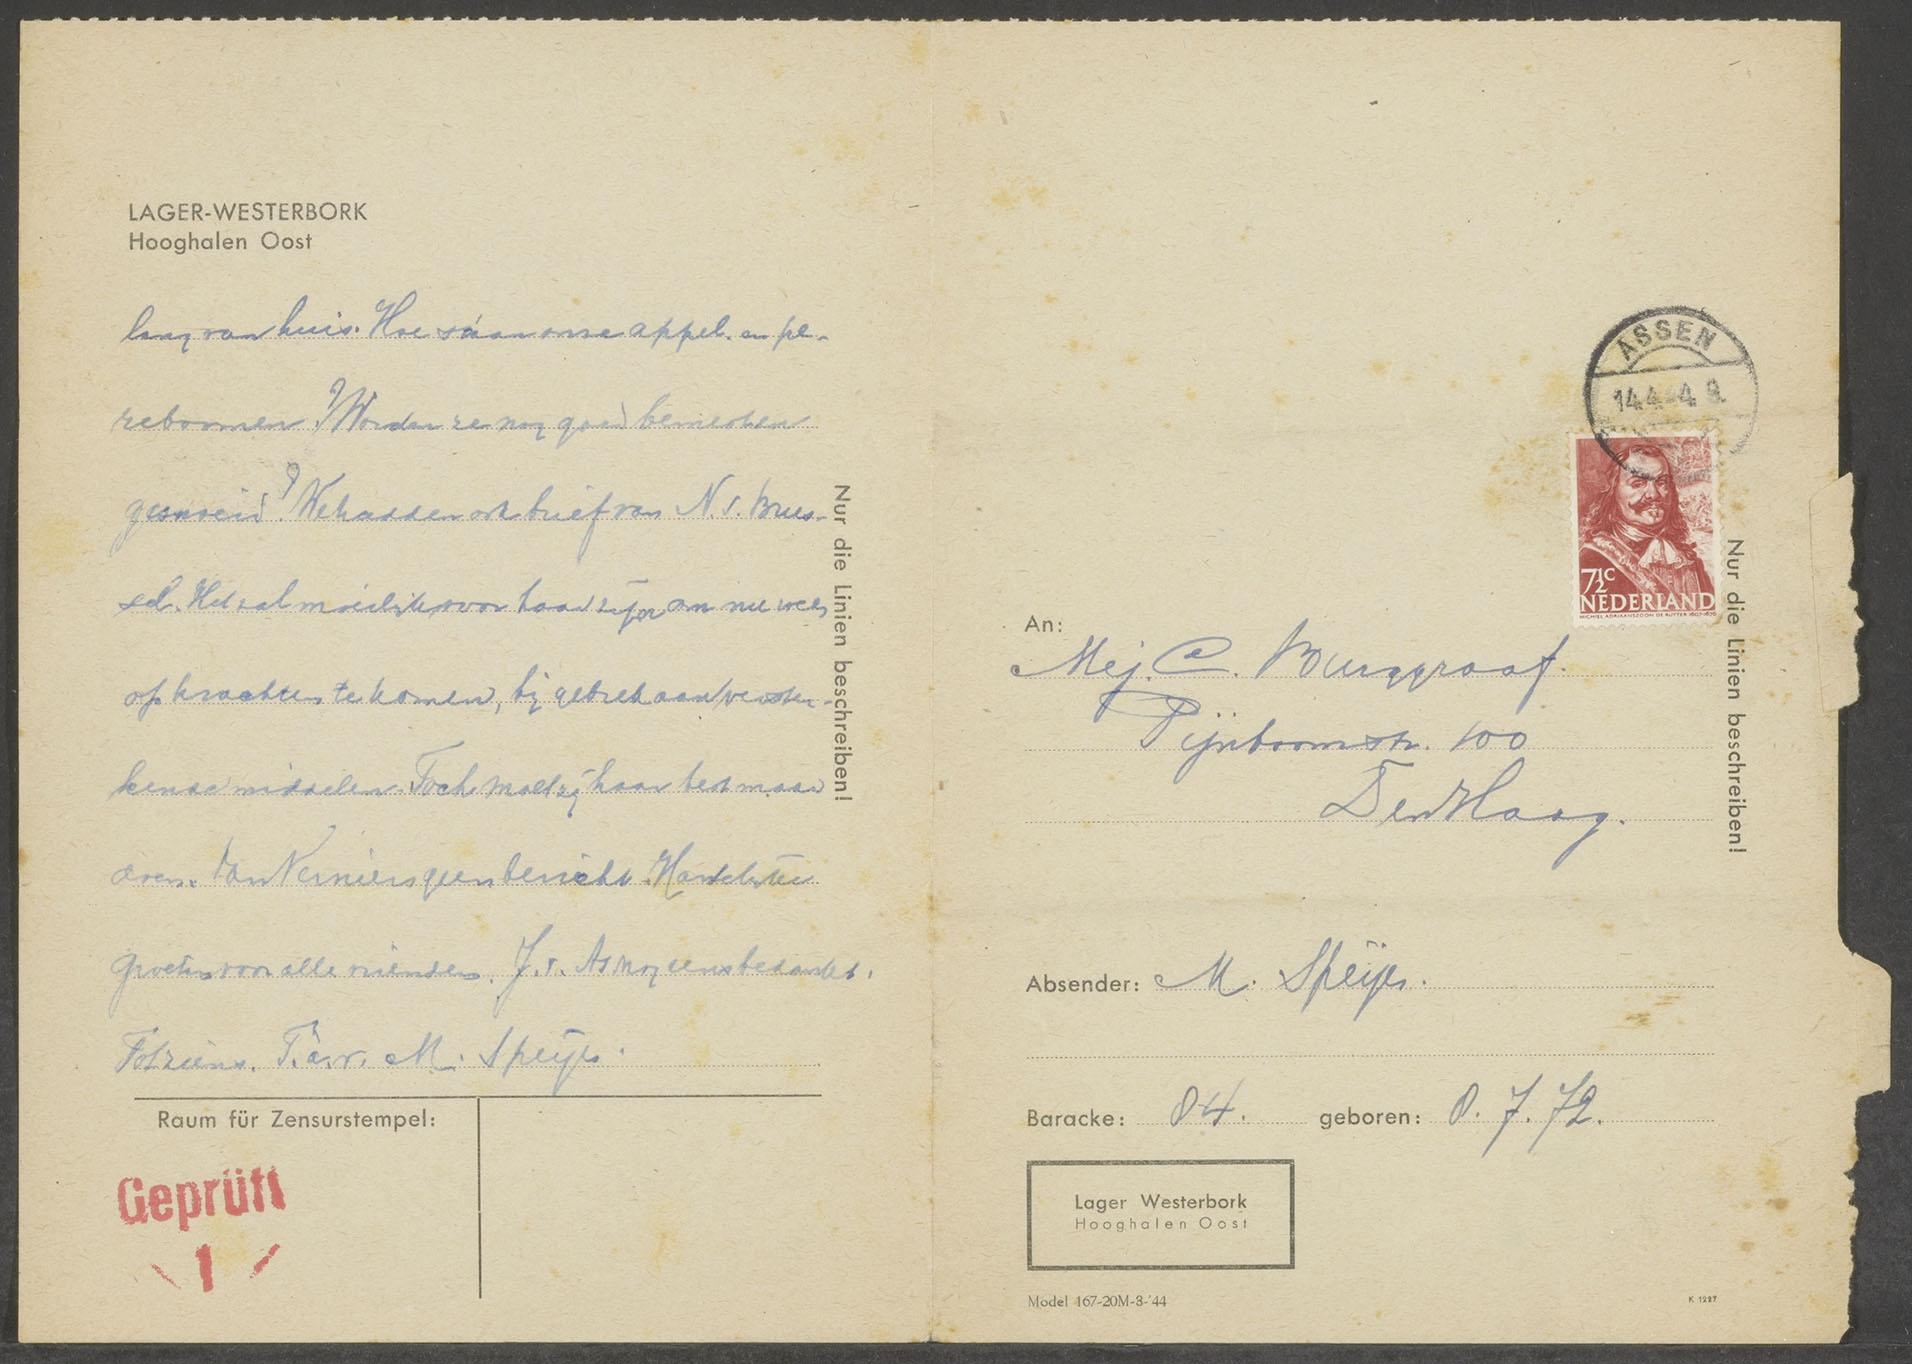 LAGER-WESTERBORK
Hooghalen Oost
lang van huis. Hoe staan onze appel. en pe-
reboomen? Worden ze nog goed bemesten
gesnoeid? We hadden ook brief van N. v. Brus-
sel. Het zal moeilijk voor haar zijn om nu weer
op krachten te komen, bij gebrek aan verster-
kende middelen. Toch moet zij haar best maar
doen. Van geen bericht. Hartelijke
groeten voor alle vrienden. J. v. As nog eens bedankt.
Tot ziens. T.a.v. M. Speijer.
Nur die Linien beschreiben!
Raum für Zensurstempel:
Geprüft
1
ASSEN
14.4.44.9
7½c
NEDERLAND
MICHIEL ADRIAANSZOON DE RUYTER 1607-1676
Nur die Linien beschreiben!
An:
Mej. C. Burggraaf.
Pijnboomstr. 100
Den Haag.
Absender: M. Speijer.
Baracke: 84. geboren: 8.7.72.
Lager Westerbork
Hooghalen Oost
Model 167-20M-3-'44
K 1227